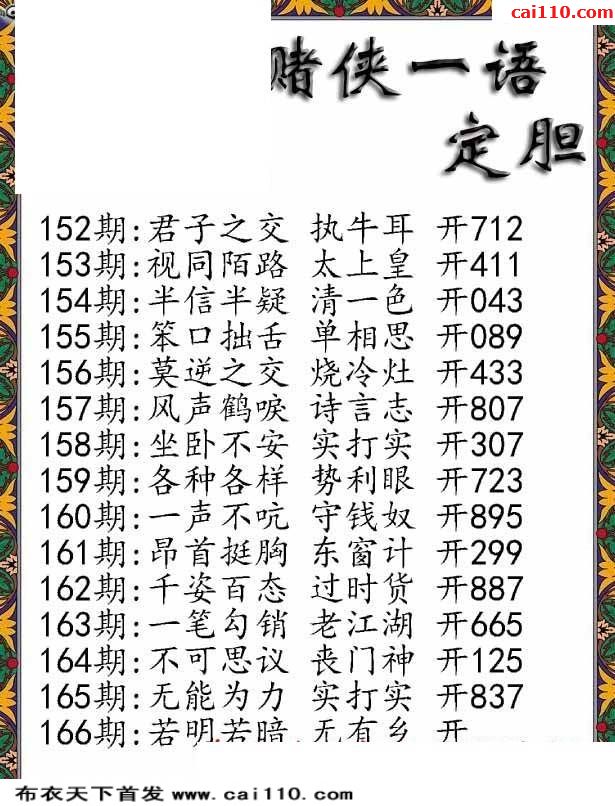 cai110.com
赌侠一语
定胆
152期:君子之交 执牛耳 开712
153期:视同陌路 太上皇 开411
154期:半信半疑 清一色 开043
155期:笨口拙舌 单相思 开089
156期:莫逆之交 烧冷灶 开433
157期:风声鹤唳 诗言志 开807
158期:坐卧不安 实打实 开307
159期:各种各样 势利眼 开723
160期:一声不吭 守钱奴 开895
161期:昂首挺胸 东窗计 开299
162期:千姿百态 过时货 开887
163期:一笔勾销 老江湖 开665
164期:不可思议 丧门神 开125
165期:无能为力 实打实 开837
166期:若明若暗 无有乡 开
布衣天下首发 www.cai110.com